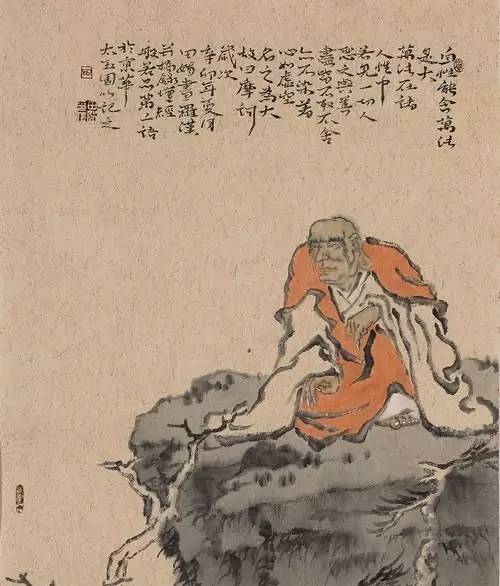 自性能含萬法
是大
萬法在諸
人性中
若見一切人
惡之與善
盡皆不取不舍
亦不染著
心如虛空
名之為大
故曰摩訶
歲次
辛卯年夏月
田 畫羅漢
并摘錄壇經
般若品第二語
於京華
太玉園以記之